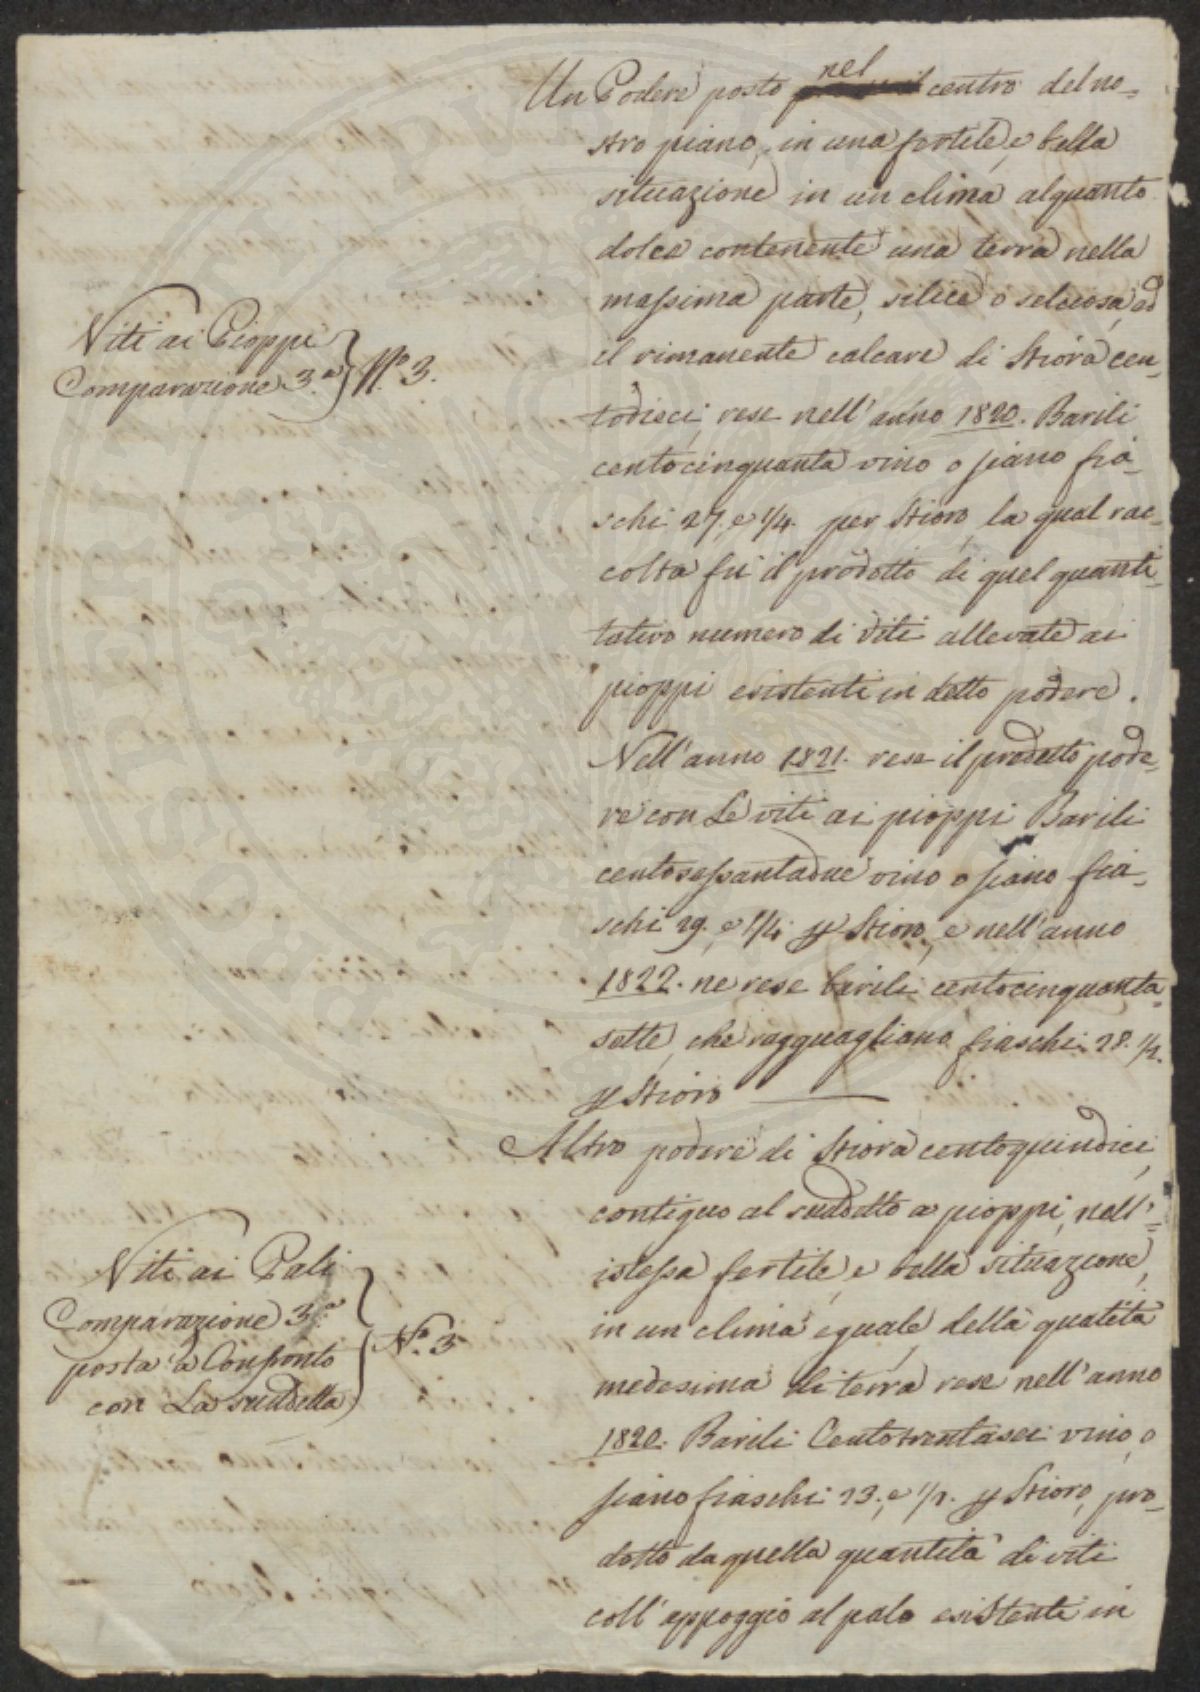 nel
Un Podere posto centro del no=
stro piano, in una fertile, e bella
situazione in un clima alquanto
dolce contenente una terra nella
massima parte, silice o selciosa, ed
il rimanente calcare di Stiora cen=
todieci, rese nell'anno 1820. Barili
centocinquanta vino o siano fia=
schi 27. e 1/4. per Stioro, la qual rac=
colta fù il prodotto di quel quanti=
tativo numero di viti allevate ai
pioppi esistenti in detto podere.
Nell'anno 1821. rese il predetto pode=
re con Le viti ai pioppi Barili
centosessantadue vino o siano fia=
schi 29. e 1/4. p Stioro, e nell'anno
1822. ne rese barili centocinquanta=
sette, che ragguagliano fiaschi 28. 1/2.
p Stioro
Viti ai Pioppi
Comparazione 3.a N.o 3.
Altro podere di Stiora centoquindici,
contiguo al suddetto a pioppi, nell'=
istessa fertile, e bella situazione,
in un clima eguale, della qualità
medesima di terra rese nell'anno
1820. Barili Centotrentasei vino, o
siano fiaschi 23., e 1/2. p Stioro, pro=
dotto da quella quantità di viti
coll'appoggio al palo esistenti in
Viti ai Pali
Comparazione 3.a
posta a Confronto
con La suddetta
N.o 3